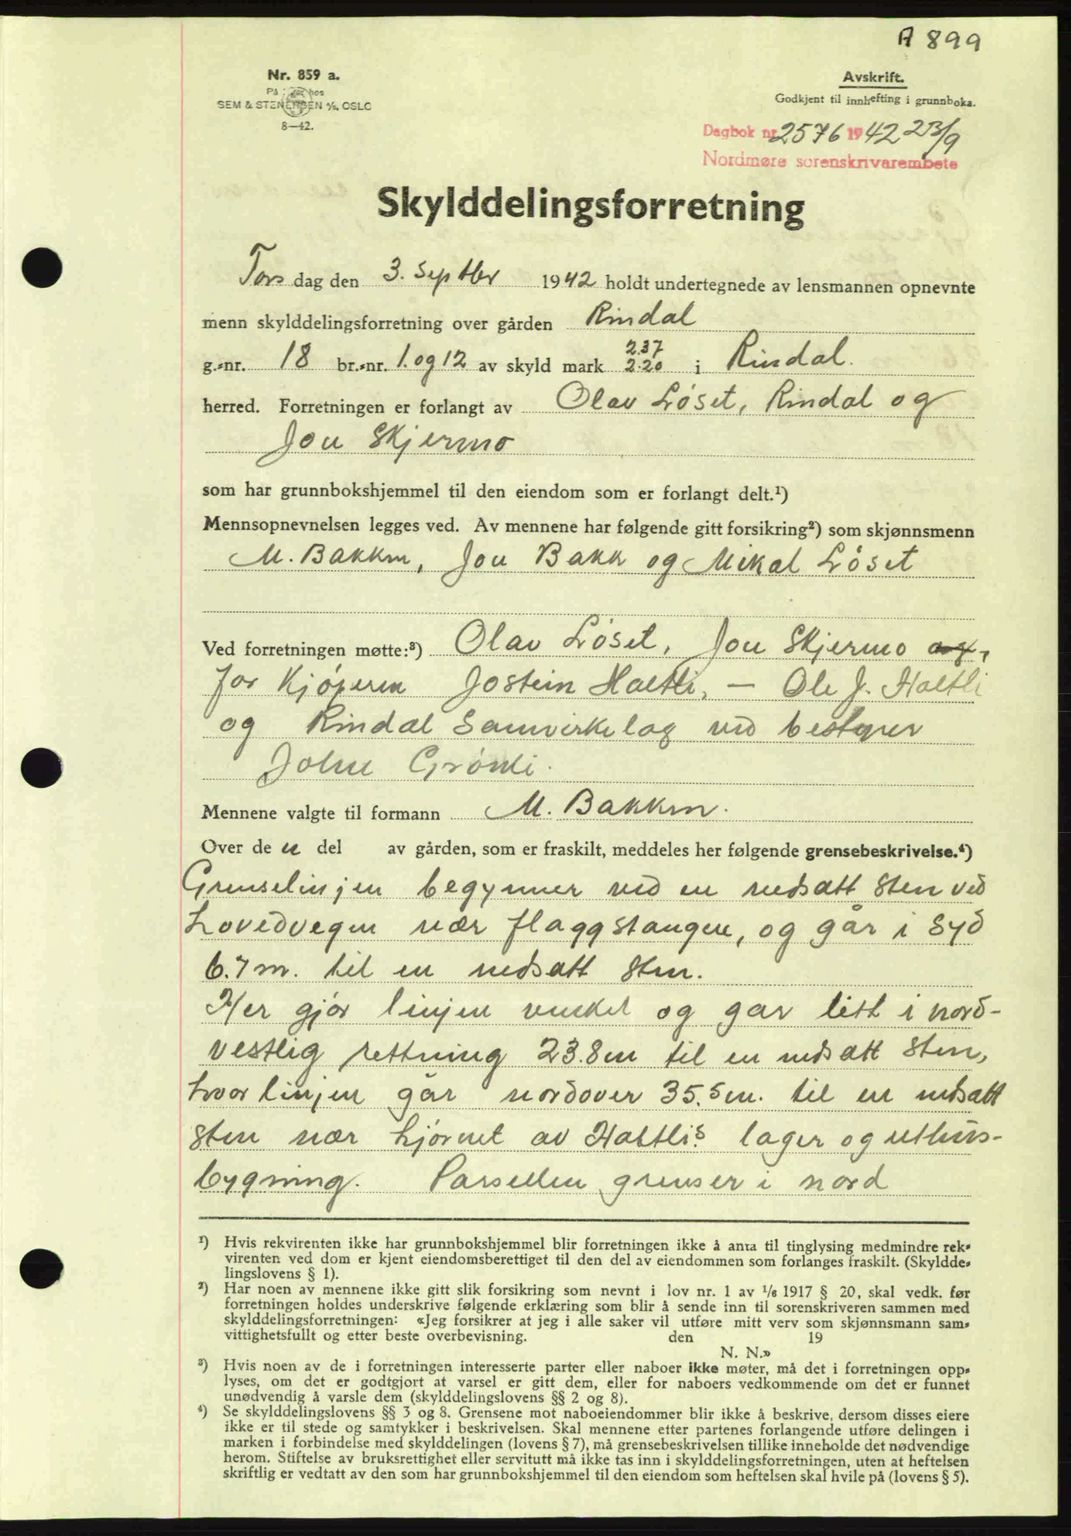 A 899
Nr. 859 a.
På lager hos
SEM & STENERSEN A/S, OSLO
8—42.
Avskrift.
Godkjent til innhefting i grunnboka.
Dagbok nr. 2576 1942 23/9
Nordmøre sorenskrivarembete
Skylddelingsforretning
Tors dag den 3. Septbr 1942 holdt undertegnede av lensmannen opnevnte
menn skylddelingsforretning over gården Rindal
g.-nr. 18 br.-nr. 1. og 12 av skyld mark 2.37 2.20 i Rindal.
herred. Forretningen er forlangt av Olav Løset, Rindal og
Jon Skjermo
som har grunnbokshjemmel til den eiendom som er forlangt delt.¹)
Mennsopnevnelsen legges ved. Av mennene har følgende gitt forsikring²) som skjønnsmenn
M. Bakken, Jon Bakk og Mikal Løset
Ved forretningen møtte:³) Olav Løset, Jon Skjermo og,
for kjøperen Jostein Haltli, — Ole J. Haltli
og Rindal Samvirkelag ved bestyrer
John Grønli.
Mennene valgte til formann M. Bakken.
Over de n del av gården, som er fraskilt, meddeles her følgende grensebeskrivelse.⁴)
Grenselinjen begynner ved en nedsatt sten ved
hovedvegen nær flaggstangen, og går i syd
6.7 m. til en nedsatt sten.
Her gjør linjen vinkel og går litt i nord-
vestlig rettning 23.8 m til en nedsatt sten,
hvor linjen går nordover 35.5 m. til en nedsatt
sten nær hjørnet av Haltli's lager og uthus-
bygning. Parsellen grenser i nord
¹) Hvis rekvirenten ikke har grunnbokshjemmel blir forretningen ikke å anta til tinglysing medmindre rek-
virenten ved dom er kjent eiendomsberettiget til den del av eiendommen som forlanges fraskilt. (Skyldde-
lingslovens § 1).
²) Har noen av mennene ikke gitt slik forsikring som nevnt i lov nr. 1 av 1/6 1917 § 20, skal vedk. før
forretningen holdes underskrive følgende erklæring som blir å sende inn til sorenskriveren sammen med
skylddelingsforretningen: «Jeg forsikrer at jeg i alle saker vil utføre mitt verv som skjønnsmann sam-
vittighetsfullt og etter beste overbevisning. den 19
N. N.»
³) Hvis noen av de i forretningen interesserte parter eller naboer ikke møter, må det i forretningen opp-
lyses, om det er godtgjort at varsel er gitt dem, eller for naboers vedkommende om det er funnet
unødvendig å varsle dem (skylddelingslovens §§ 2 og 8).
⁴) Se skylddelingslovens §§ 3 og 8. Grensene mot naboeiendommer blir ikke å beskrive, dersom disses eiere
ikke er til stede og samtykker i beskrivelsen. Skal mennene etter partenes forlangende utføre delingen i
marken i forbindelse med skylddelingen (lovens § 7), må grensebeskrivelsen tillike inneholde det nødvendige
herom. Stiftelse av bruksrettighet eller servitutt må ikke tas inn i skylddelingsforretningen, uten at heftelsen
skriftlig er vedtatt av den som har grunnbokshjemmel til den eiendom som heftelsen skal hvile på (lovens § 5).